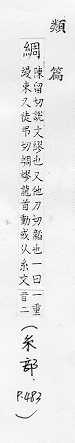 類篇
綢 陳留切說文繆也又他刀切韜也一曰一重
纏束又徒弔切綢繆龍首動皃或从糸文一音二
(糸部. P.483)